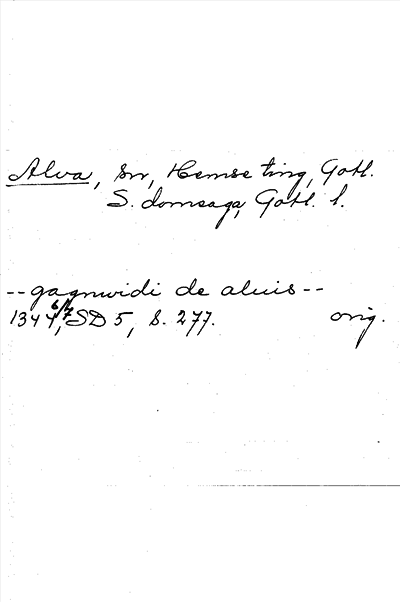 Alva, sn, Hemse ting, Gotl.
S. domsaga, Gotl. l.
--gagnvidi de aluis--
1344 6/7, SD 5, S. 277. orig.